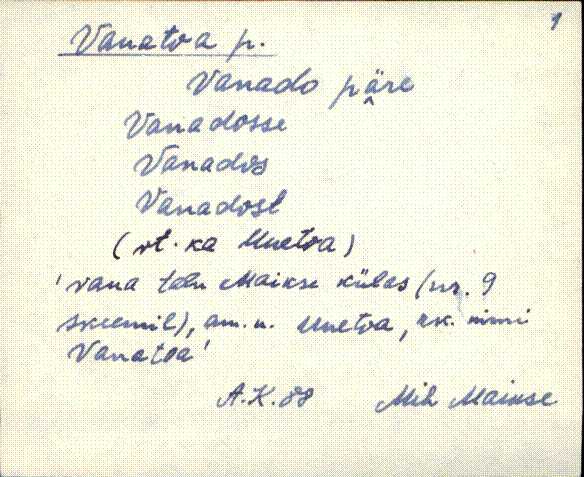 1
Vanatoa p.
Vanado päre
Vanadosse
Vanados
Vanadost
(vt. ka Unetoa)
'vana talu Maikse külas (nr. 9
skeemil), am. n. Unetoa, rk. nimi
Vanatoa'
A.K. 88 Mih Maikse